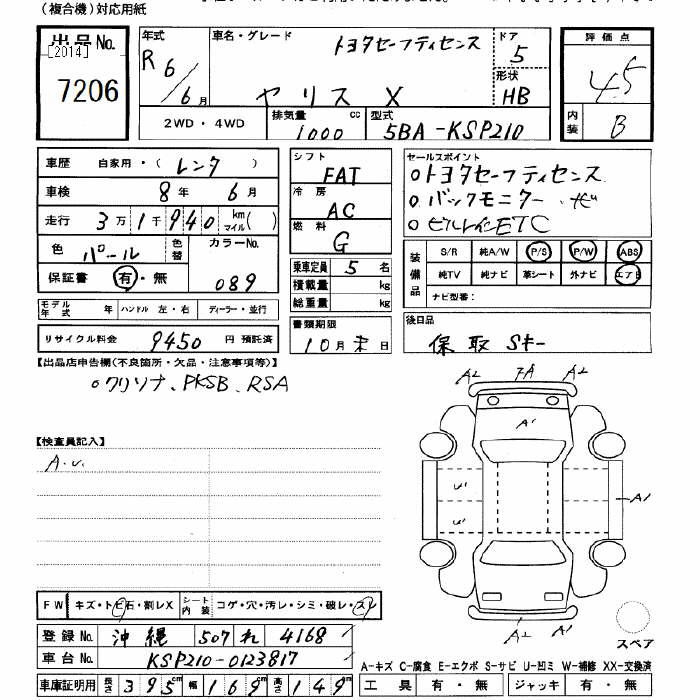 (複合機)対応用紙
出品No.
[2014]
7206
年式 R6/6月
車名・グレード トヨタセーフティセンス
ヤリス X
ドア 5
形状 HB
評価点 4.5
内装 B
2WD・4WD
排気量 1000 cc
型式 5BA-KSP210
車歴 自家用・(レンタ)
車検 8年 6月
走行 3万1千940 km マイル( )
色 パール
色替
カラーNo. 089
保証書 有・無
モデル年式 年 ハンドル 左・右 ディーラー・並行
リサイクル料金 9450 円 預託済
シフト FAT
冷房 AC
燃料 G
乗車定員 5 名
積載量 kg
総重量 kg
書類期限
10月末日
セールスポイント
○トヨタセーフティセンス
○バックモニター.ナビ
○ビルトインETC
装備品
S/R 純A/W P/S P/W ABS
純TV 純ナビ 革シート 外ナビ エアB
ナビ型番:
後日品
保 取 Sキー
【出品店申告欄(不良箇所・欠品・注意事項等)】
○クリソナ、PKSB、RSA
【検査員記入】
A.U.
A2 7A A2
A1
U1
U1
A1
A2 A1
スペア
FW キズ・トビ石・割レX
シート内装 コゲ・穴・汚レ・シミ・破レ・スレ
登録No. 沖縄 507 れ 4168
車台No. KSP210-0123817
車庫証明用 長さ 395cm 幅 169cm 高さ 149cm
A-キズ C-腐食 E-エクボ S-サビ U-凹ミ W-補修 XX-交換済
工具 有・無 ジャッキ 有・無